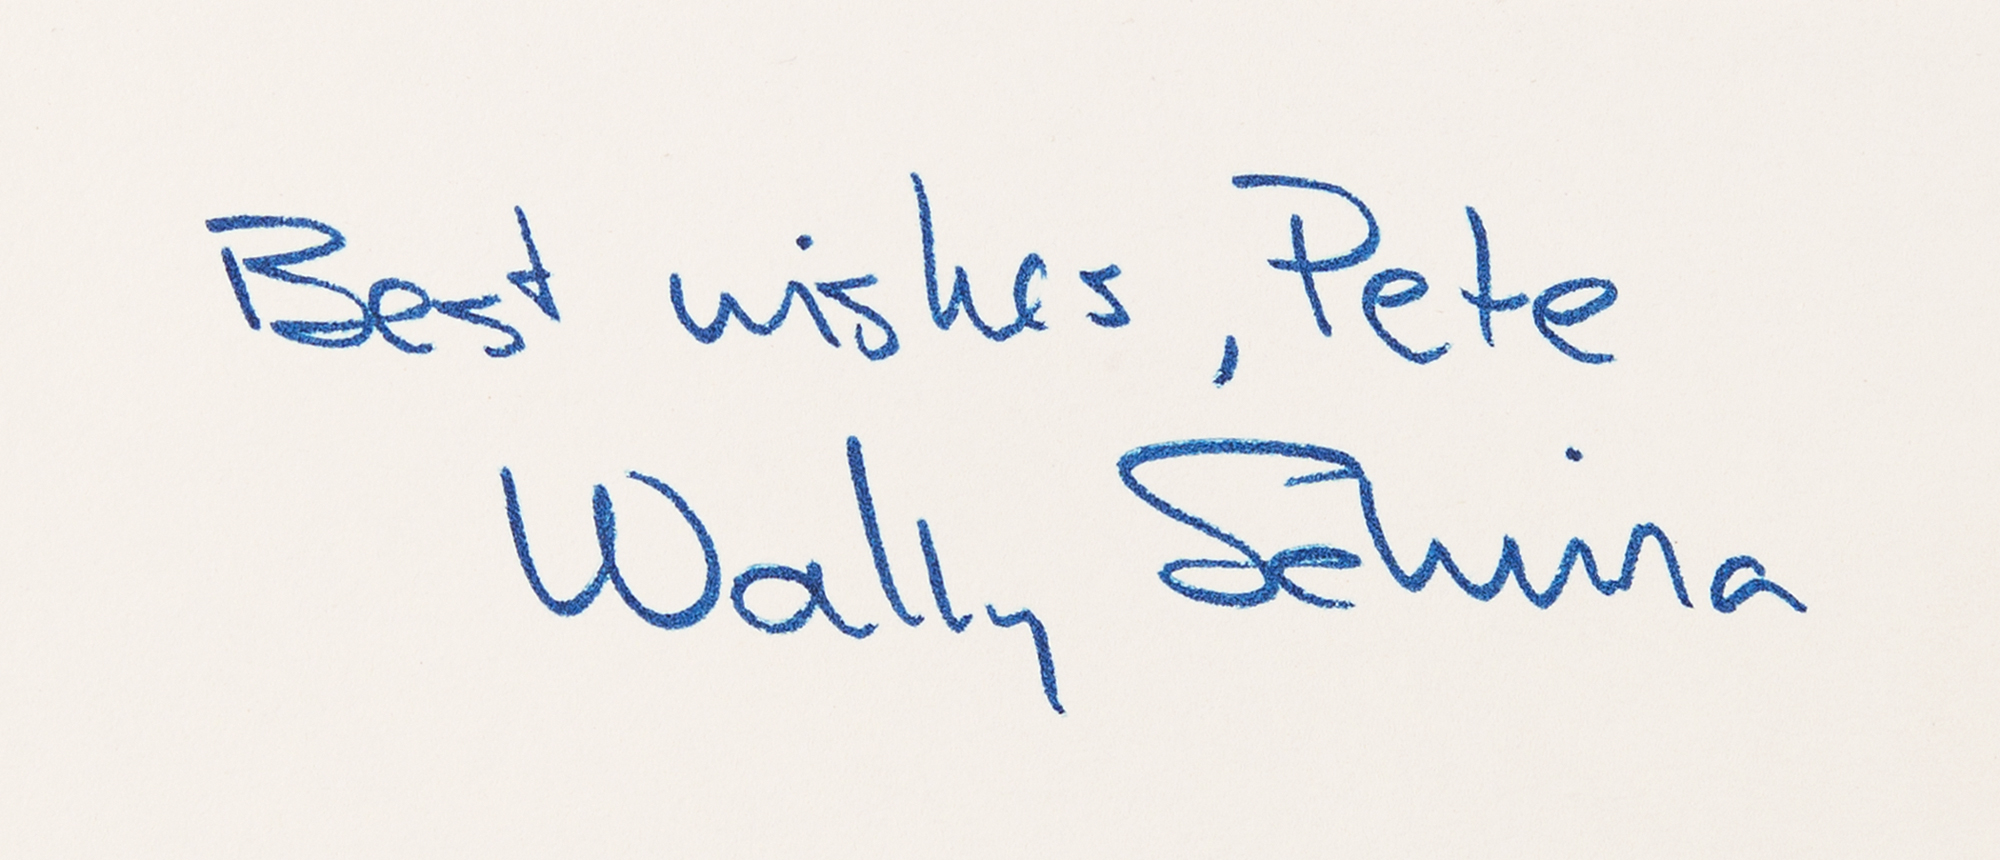 Best wishes, Pete
Wally Schirra